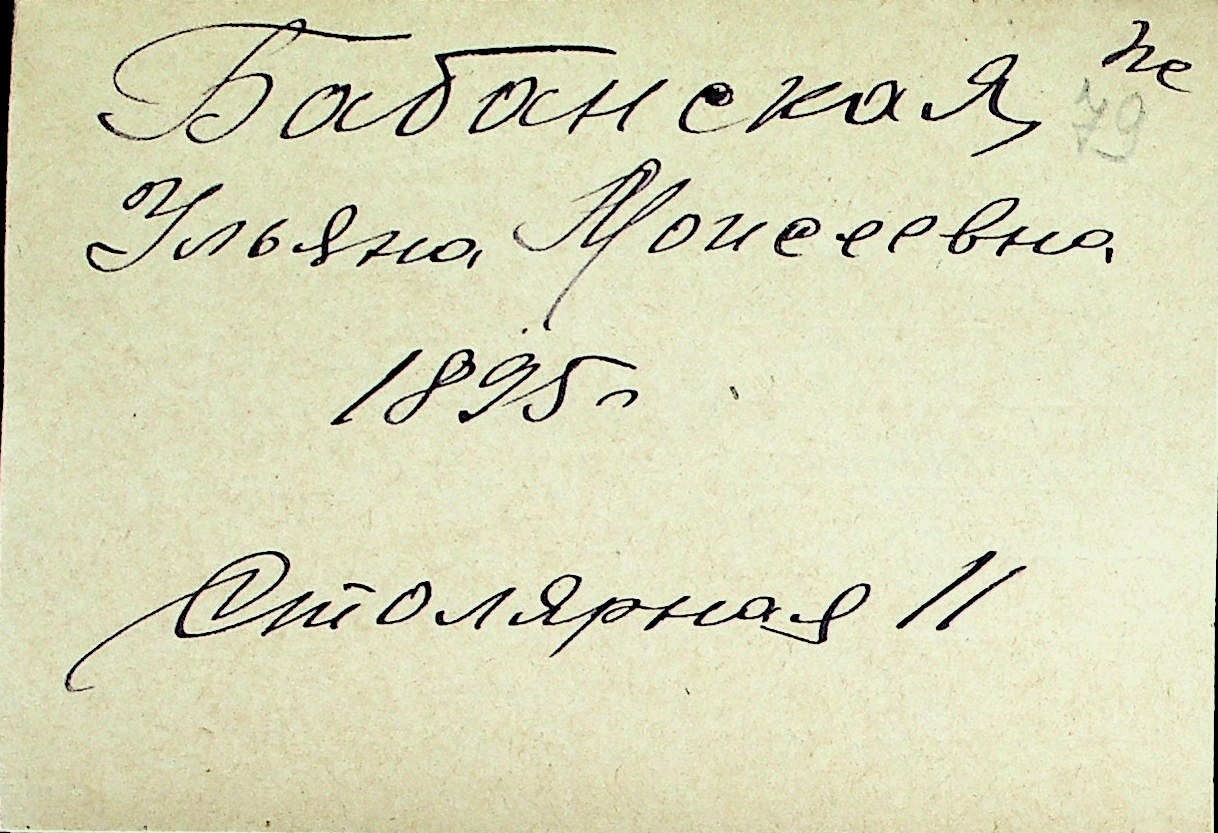 Бабанская
79
Ульяна Моисеевна
1895г
Столярная 11